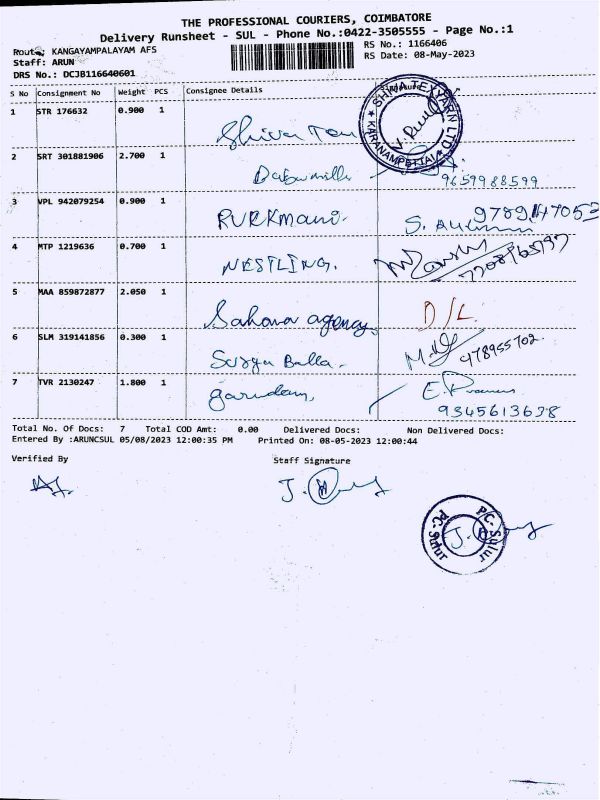 THE PROFESSIONAL COURIERS, COIMBATORE
Delivery Runsheet - SUL - Phone No.:0422-3505555 - Page No.:1
Route: KANGAYAMPALAYAM AFS
RS No.: 1166406
Staff: ARUN
RS Date: 08-May-2023
DRS No.: DCJB116640601
S No Consignment No Weight PCS Consignee Details
1 STR 176632 0.900 1 Shiva
SHIVA TEXYARN LTD
KARANAMPETTAI
2 SRT 301881906 2.700 1
9659988599
3 VPL 942079254 0.900 1 RUKKMANI.
9789147053
4 MTP 1219636 0.700 1 NESTLING.
5 MAA 859872877 2.050 1 Sahana agency D/L
6 SLM 319141856 0.300 1 Surya Balla.
7 TVR 2130247 1.800 1
9345613638
Total No. Of Docs: 7 Total COD Amt: 0.00 Delivered Docs: Non Delivered Docs:
Entered By :ARUNCSUL 05/08/2023 12:00:35 PM Printed On: 08-05-2023 12:00:44
Verified By Staff Signature
PC. Sulur PC. Sulur